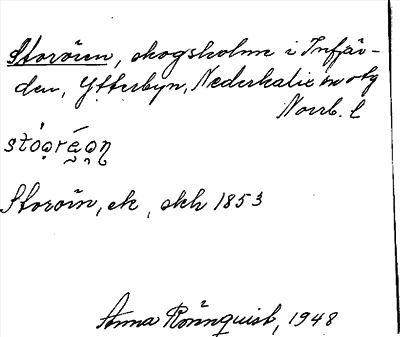 Storöen, skogsholme i Infjär-
den, Ytterbyn, Nederkalix sn o tg
Norrb. l
Storöin, ek, skh 1853
Anna Rönnquist, 1948